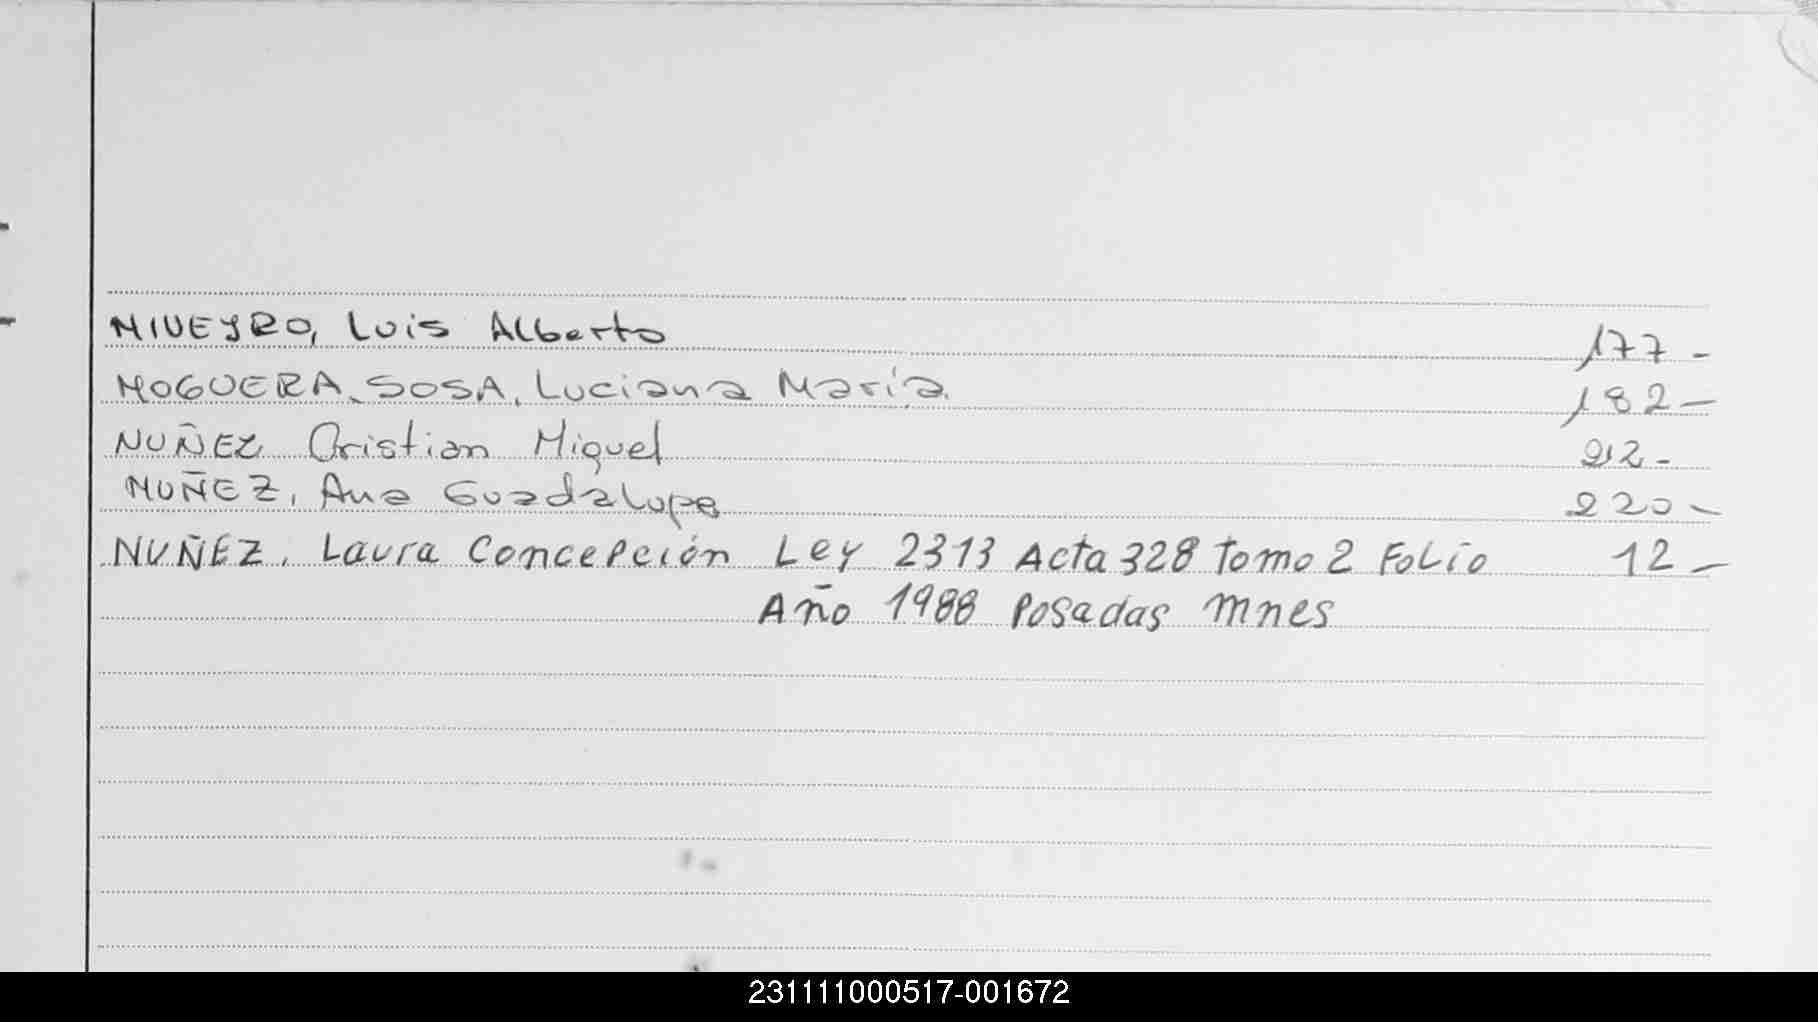 NIVEYRO, Luis Alberto 177 -
NOGUERA SOSA, Luciana María. 182 -
NUÑEZ Cristian Miguel 212 -
NUÑEZ, Ana Guadalupe 220 -
NUÑEZ, Laura Concepción Ley 2313 Acta 328 Tomo 2 Folio 12 -
Año 1988 Posadas Mnes
231111000517-001672